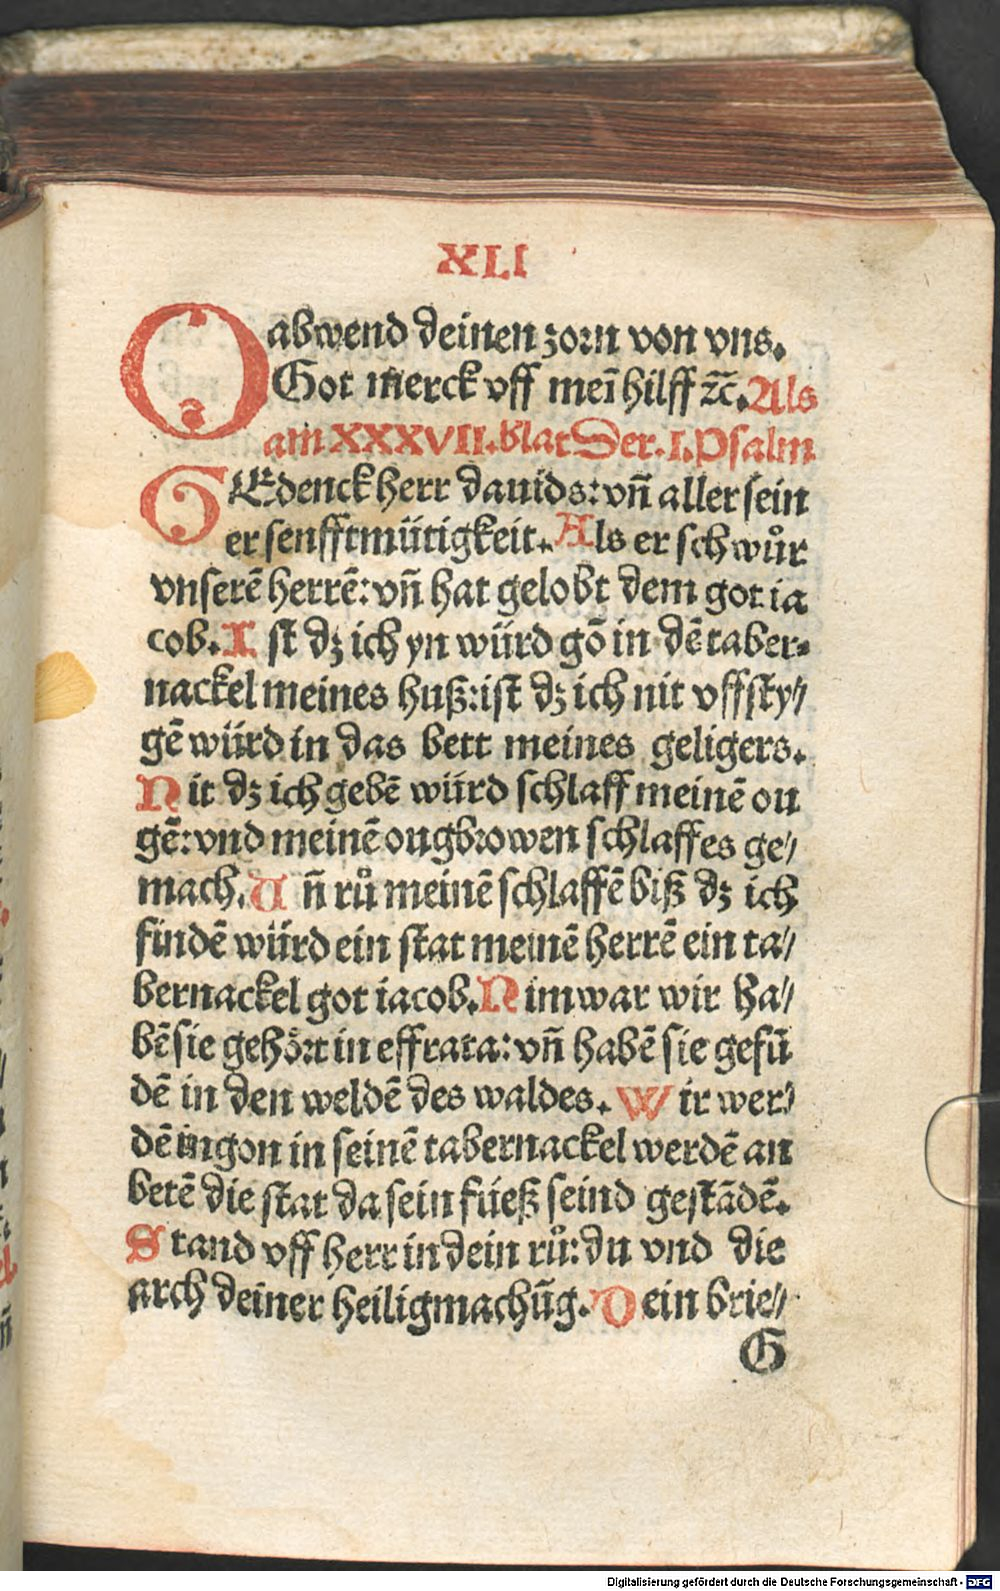 XLI
O abwend deinen zorn von vns.
Got merck vff mei᷑ hilff ꝛc̄. Als
am XXXVII. blat Der .I. Psalm
GEdenck herr dauids: vñ aller sein
er senfftmütigkeit. Als er schwůr
vnserē herrē: vñ hat gelobt dem got ia
cob. Ist dz ich yn würd gō in dē taber⸗
nackel meines huß: ist dz ich nit vffsty⸗
gē würd in das bett meines geligers.
Nit dz ich gebē würd schlaff meinē ou
gē: vnd meinē ougbrowen schlaffes ge⸗
mach. Vñ rů meinē schlaffē biß dz ich
findē würd ein stat meinē herrē ein ta⸗
bernackel got iacob. Nim war wir ha⸗
bē sie gehört in effrata: vñ habē sie gefū
dē in den weldē des waldes. Wir wer⸗
dē ingon in seinē tabernackel werdē an
betē die stat da sein füeß seind gestādē.
Stand vff herr in dein rů: du vnd die
arch deiner heiligmachūg. Dein brie⸗
G
Digitalisierung gefördert durch die Deutsche Forschungsgemeinschaft - DFG